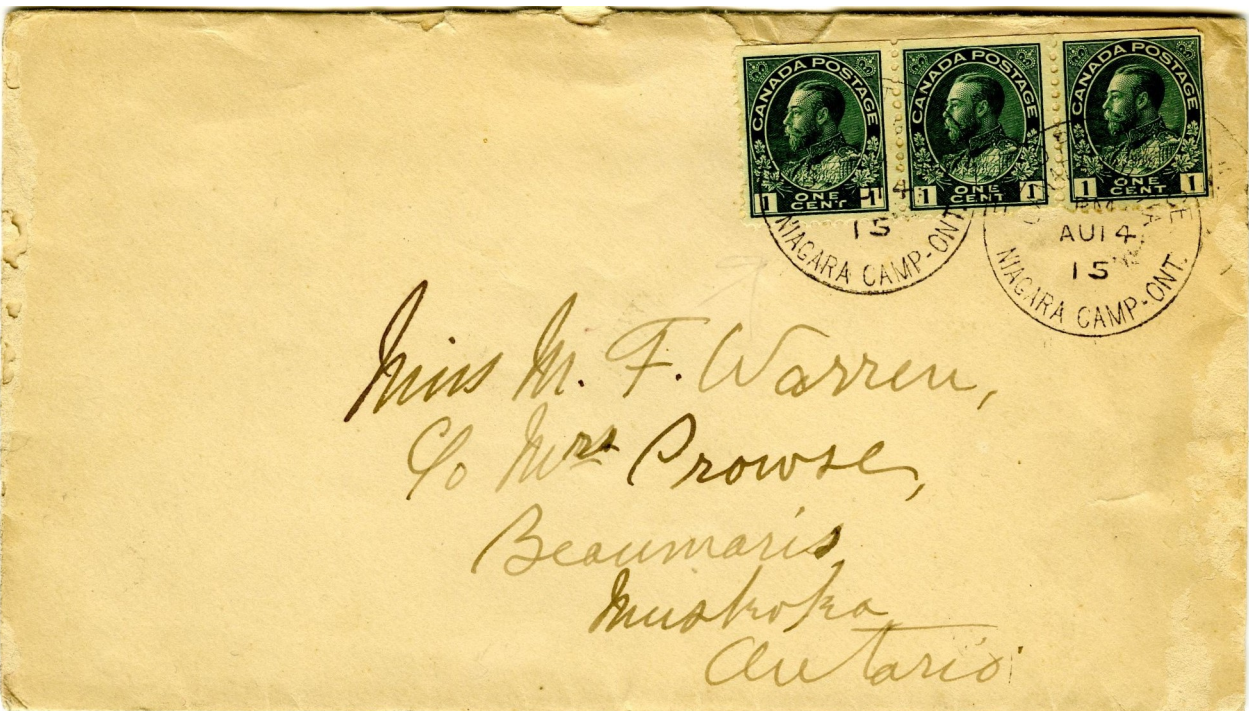 CANADA POSTAGE CANADA POSTAGE CANADA POSTAGE
1 ONE CENT 1 1 ONE CENT 1 1 ONE CENT 1
4
15
NIAGARA CAMP-ONT.
PM
AU 14
15
NIAGARA CAMP-ONT.
Miss M. F. Warren,
C/o Mrs Prowse,
Beaumaris
Muskoka
Ontario